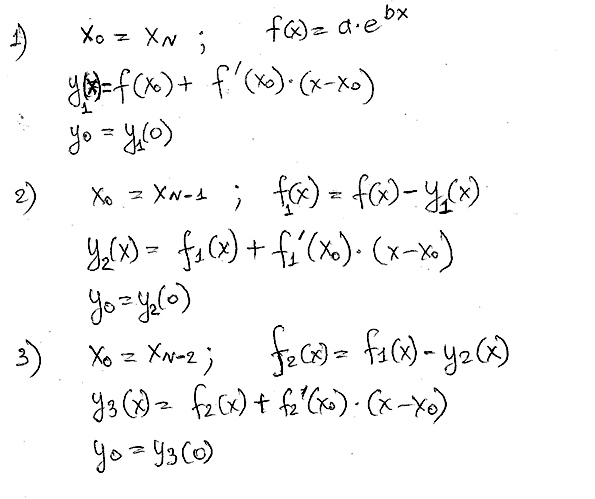 1) x₀ = x_N ; f(x) = a·e^{bx}
y₁(x) = f(x₀) + f'(x₀)·(x-x₀)
y₀ = y₁(0)
2) x₀ = x_{N-1} ; f₁(x) = f(x) - y₁(x)
y₂(x) = f₁(x) + f₁'(x₀)·(x-x₀)
y₀ = y₂(0)
3) x₀ = x_{N-2} ; f₂(x) = f₁(x) - y₂(x)
y₃(x) = f₂(x) + f₂'(x₀)·(x-x₀)
y₀ = y₃(0)